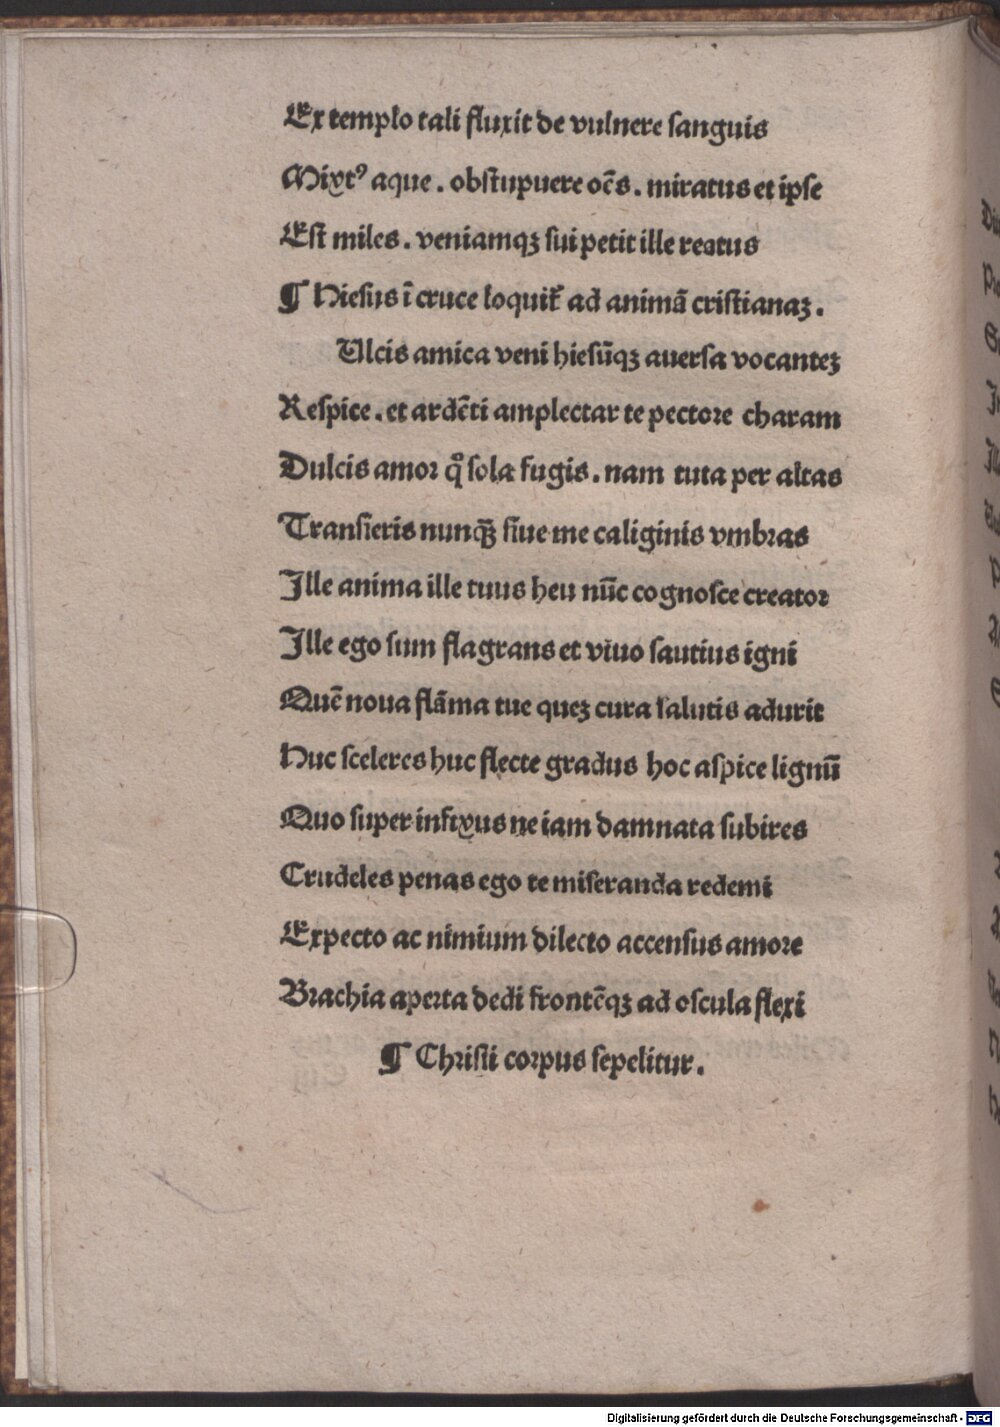 Ex templo tali fluxit de vulnere ſanguis
Mixtꝰ aque . obſtupuere oēs . miratus et ipſe
Eſt miles . veniamqꝫ ſui petit ille reatus
¶ Hieſus ī cruce loquit᷑ ad animā criſtianaꝫ .
Ulcis amica veni hieſūqꝫ auerſa vocanteꝫ
Reſpice . et ardēti amplectar te pectore charam
Dulcis amor qͦ ſola fugis . nam tuta per altas
Tranſieris nunqᷓꝫ ſiue me caliginis vmbras
Ille anima ille tuus heu nūc cognoſce creator
Ille ego ſum flagrans et viuo ſautius igni
Quē noua flāma tue queꝫ cura ſalutis adurit
Huc ſceleres huc flecte gradus hoc aſpice lignū
Quo ſuper infixus ne iam damnata ſubires
Crudeles penas ego te miſeranda redemi
Expecto ac nimium dilecto accenſus amore
Brachia aperta dedi frontēqꝫ ad oſcula flexi
¶ Chriſti corpus ſepelitur .
Digitalisierung gefördert durch die Deutsche Forschungsgemeinschaft - DFG